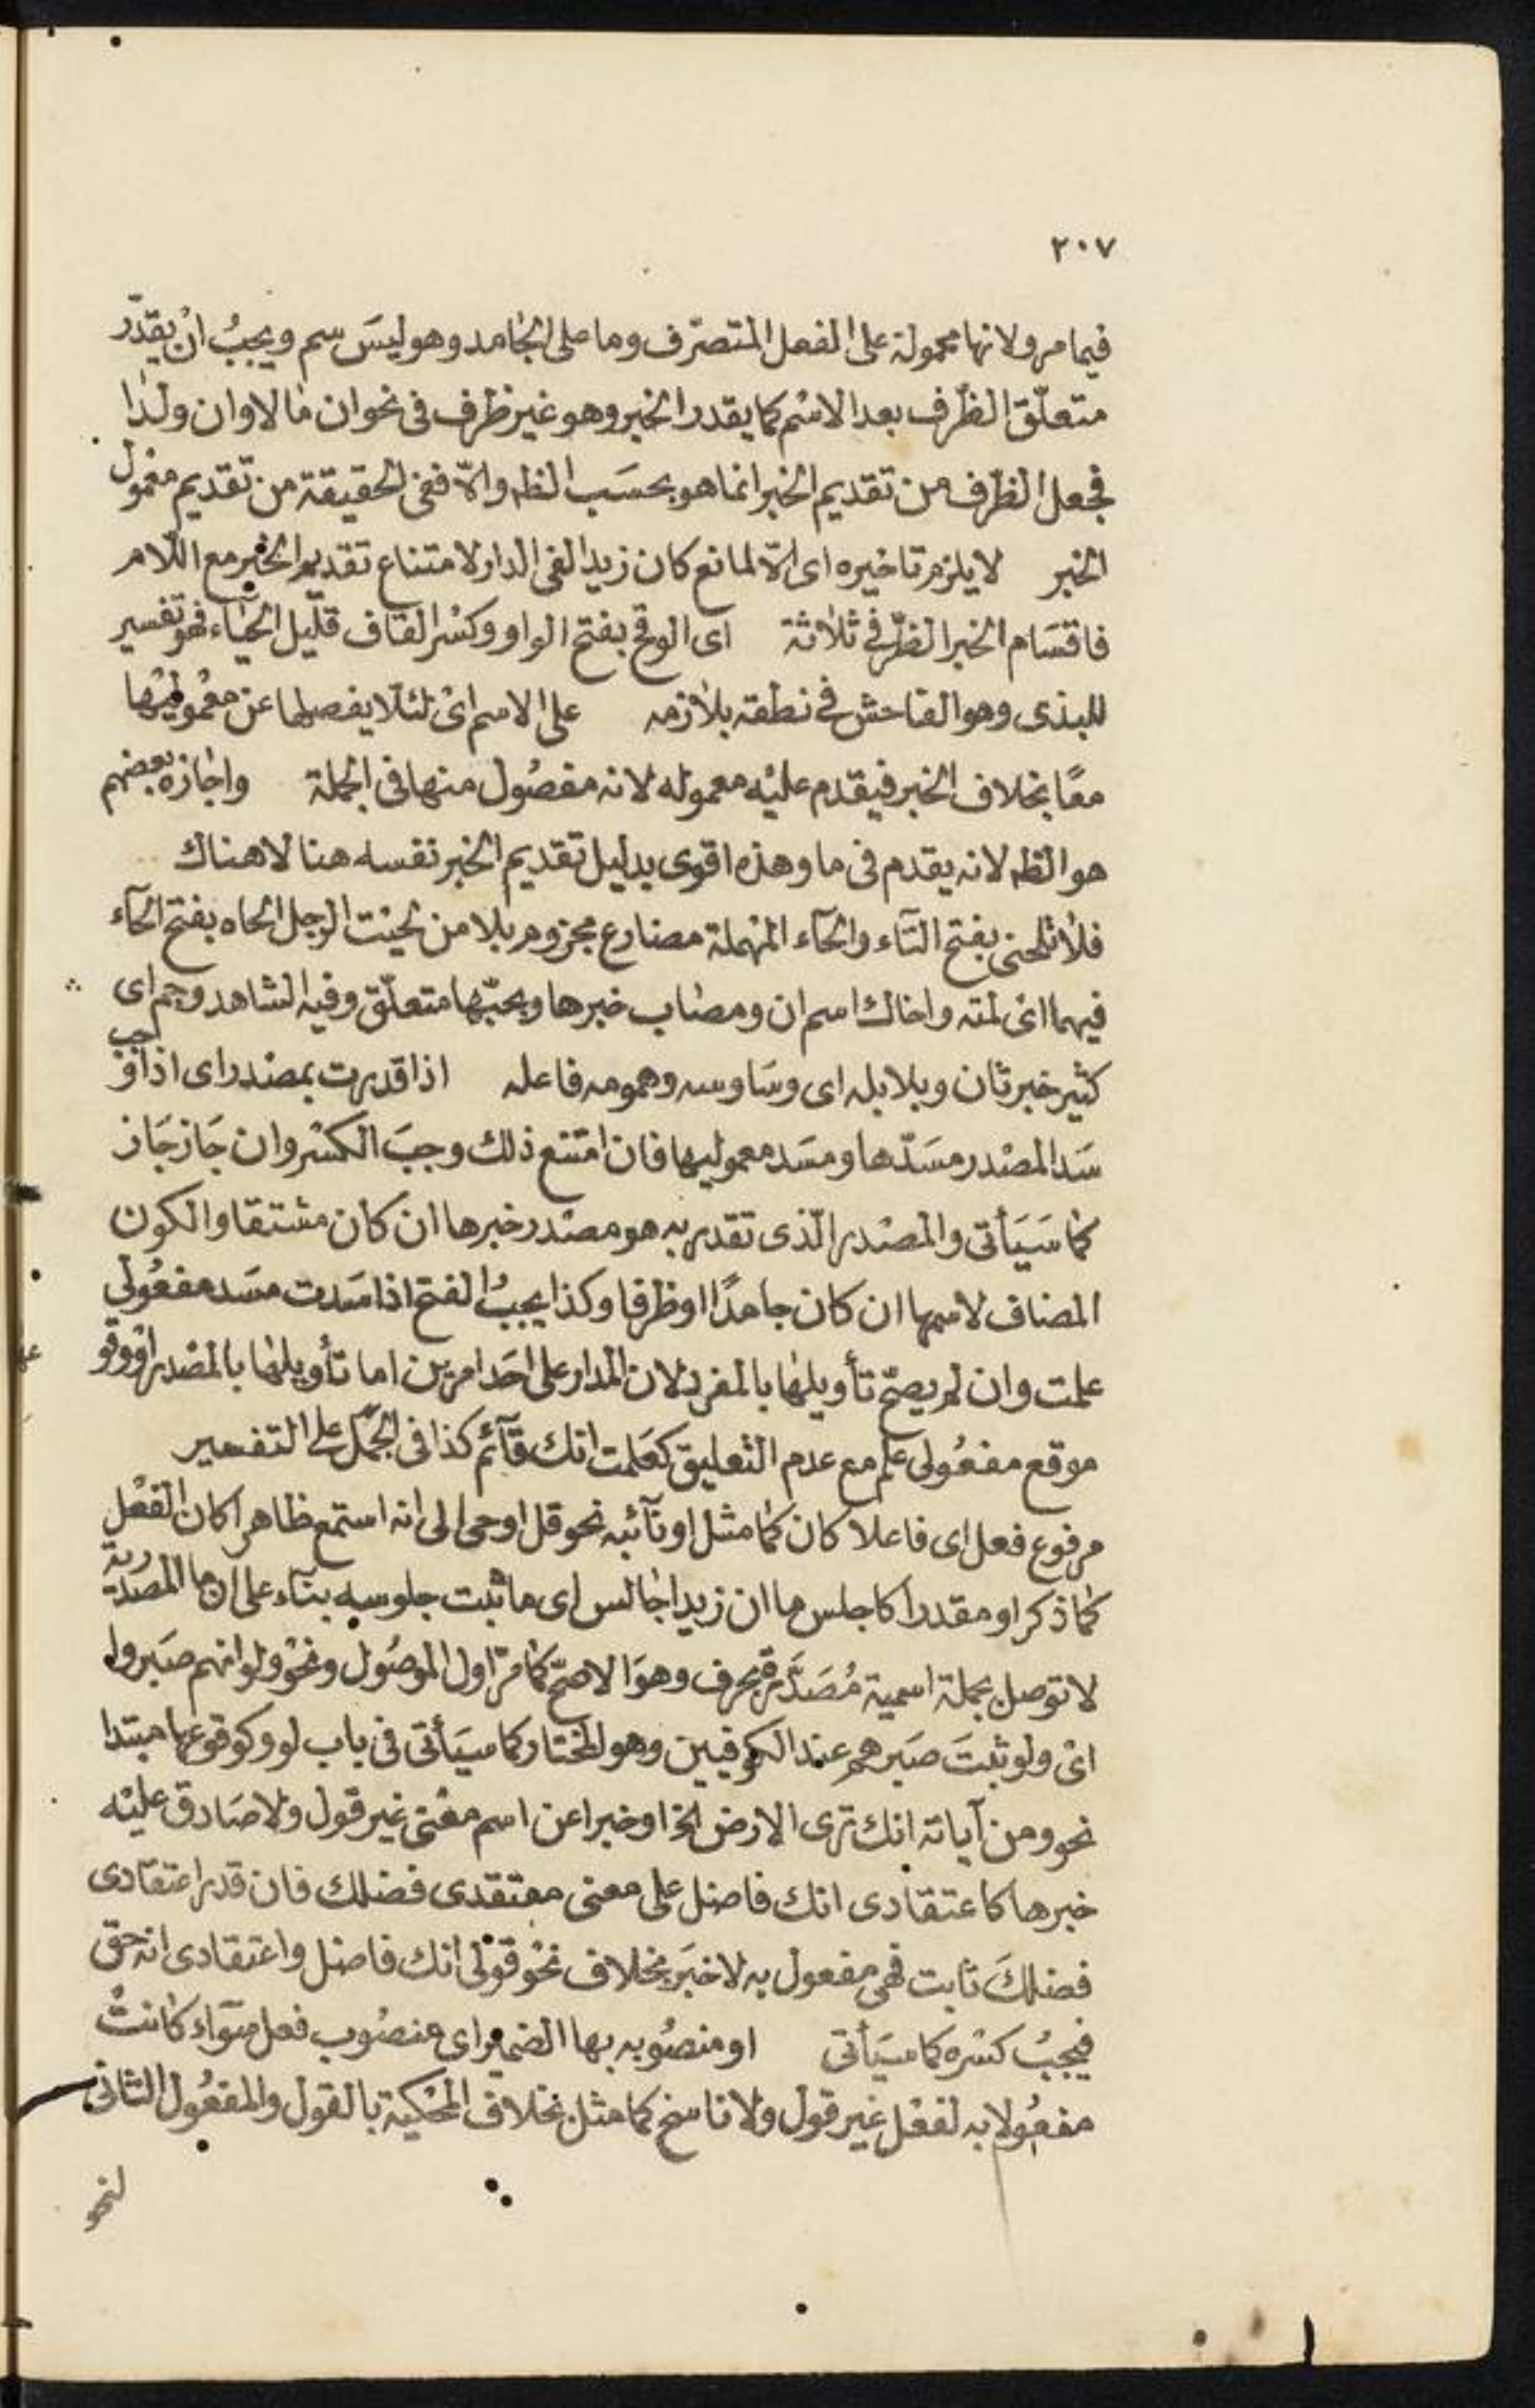 ٢٠٧
فيما مر ولانها محمولة على الفعل المتصرّف وما على الجامد وهو ليسَ سم ويجبُ انْ يقدّر
متعلّق الظّرف بعد الاسْم كما يقدر الخبر وهو غير ظرف فى نحو ان مالا وان ولدا
فجعل الظّرف من تقديم الخبر انما هو بحسَب الظه والّا ففى الحقيقة من تقديم معمول
الخبر لا يلزم تاخيره اى الّا لمانع كان زيدا لفى الدار لامتناع تقديم الخبر مع اللّام
فاقسَام الخبر الظّرفى ثلاثة اى الوقح بفتح الواو وكسْر القاف قليل الحيَاء فهو تفسير
للبذى وهو الفاحش فى نطقه بلازمه على الاسم اىْ لئلّا يفصلها عن معْموليْها
معًا بخلاف الخبر فيقدم عليْه معموله لانه مفصُول منها فى الجملة واجازه بعضهم
هو الظه لانه يقدم فى ما وهذه اقوى بدليل تقديم الخبر نفسه هنا لا هناك
فلا تلحنى بفتح التآء والحآء المهْملة مضارع مجزوم بلا من لحيْت الرجل الحاه بفتح الحآء
فيهما اىْ لمته واخاك اسم ان ومصاب خبرها وبحبّها متعلّق وفيه الشاهد وجم اى
كثير خبر ثان وبلابله اى وسَاوسه وهمومه فاعله اذا قدرت بمصْدر اى اذا وجب
سَد المصْدر مسَدّها ومسَد معموليها فان امتنع ذلك وجبَ الكسْر وان جَاز جَاز
كما سَيَأتى والمصْدر الّذى تقدر به هو مصْدر خبرها ان كان مشتقا والكون
المضاف لاسمها ان كان جامدًا او ظرفا وكذا يجبُ الفتح اذا سَدت مسَد مفعُولى
علمت وان لم يصحّ تأويلها بالمفرد لان المدار على احَد امرين اما تأويلها بالمصْدر او وقو
موقع مفعُولى علم مع عدم التعليق كعَلمت انك قآئم كذا فى الجمَل على التفسير
مرفوع فعل اى فاعلا كان كما مثل او نآئبه نحو قل اوحى الى انه استمع ظاهرا كان الفعْل
كما ذكر او مقدرا كاجلس ما ان زيدا جالس اى ما ثبت جلوسه بنآء على ان ما المصْدرية
لا توصل بجملة اسمية مُصَدَّرة بحرف وهوَ الاصحّ كما مرّ اول الموصُول ونحْو ولو انهم صَبروا
اىْ ولو ثبتَ صَبرهم عند الكوفيين وهو المختار كما سيَأتى فى باب لو وكوقوعها مبتدا
نحو ومن آياته انك ترى الارض الخ او خبرا عن اسم معْنى غير قول ولا صَادق عليْه
خبرها كاعتقادى انك فاضل على معنى معتقدى فضلك فان قدر اعتقادى
فضلكَ ثابت فهى مفعول به لا خبَر بخلاف نحْو قوْلى انك فاضل واعتقادى انه حق
فيجبُ كسْره كما سيَأتى او منصُوبه بها الضمير اى منصُوب فعل سوَآء كانتْ
مفعُولا به لفعْل غير قول ولا ناسخ كما مثل بخلاف المحْكية بالقول والمفعُول الثانى
لنحو